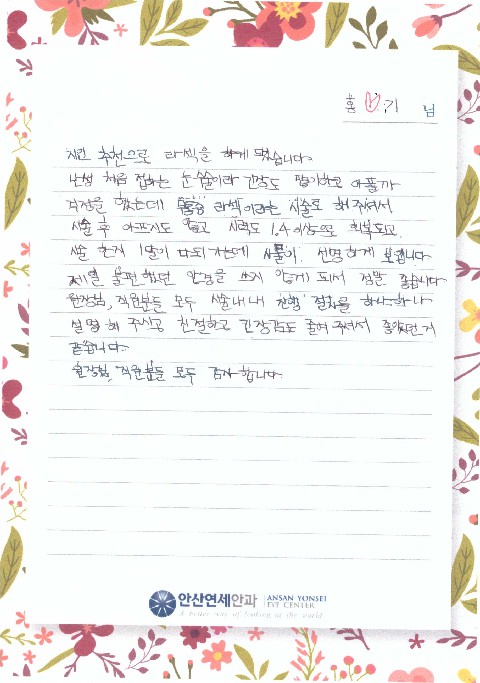 홍 기 님
지인 추천으로 라섹을 하게 됐습니다.
난생 처음 접하는 눈 수술이라 긴장도 많이하고 아플까
걱정을 했는데 라섹이라는 시술로 해 주셔서
시술 후 아프지도 않고 시력도 1.4 이상으로 회복되고.
시술 한지 1달이 다되가는데 사물이 선명하게 보입니다
제일 불편했던 안경을 쓰지 않게 되서 정말 좋습니다
원장님, 직원분들 모두 시술내내 진행 절차를 하나하나
설명해 주시고 친절하고 긴장감도 풀어 주셔서 좋았던거
같습니다.
원장님, 직원분들 모두 감사합니다
안산연세안과 ANSAN YONSEI
EYE CENTER
A better way of looking at the world